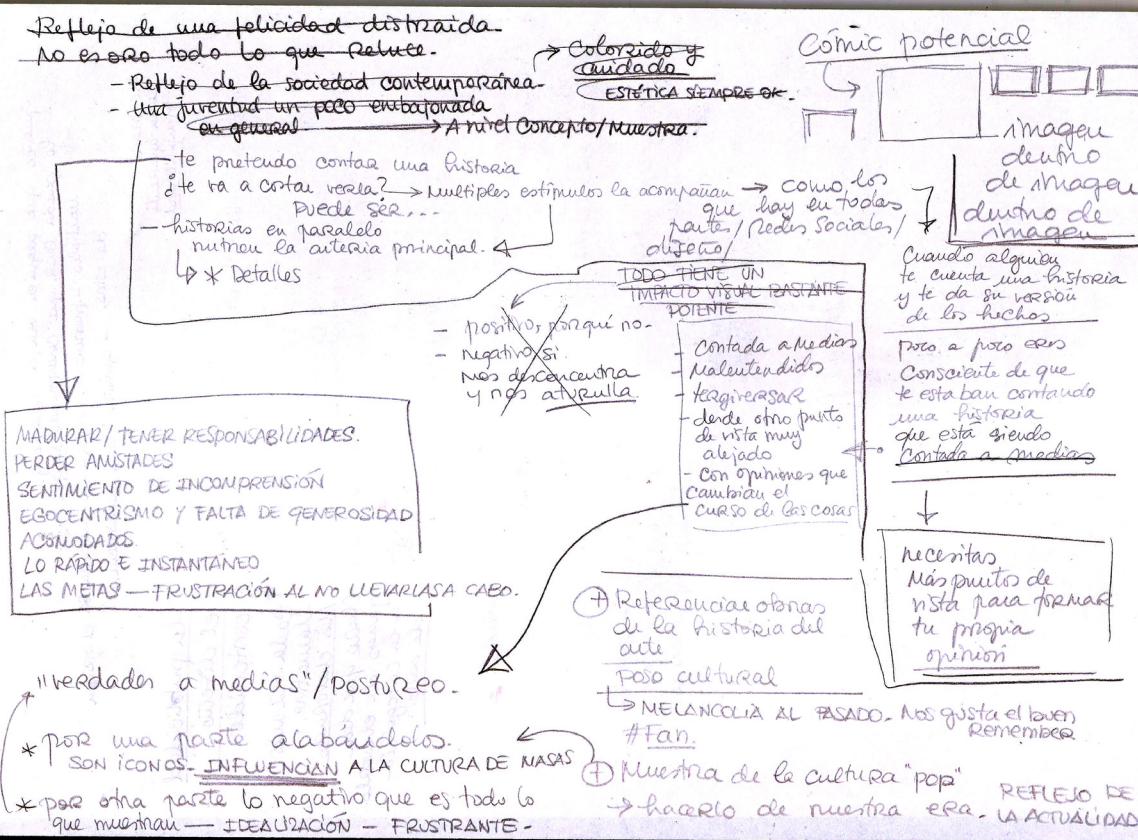 Reflejo de una felicidad distraida.
No es oro todo lo que reluce.
- Reflejo de la sociedad contemporánea.
- Una juventud un poco embajonada
en general.
Colorido y
cuidado
ESTÉTICA SIEMPRE OK.
A nivel Concepto/Muestra.
Cómic potencial
imagen
dentro
de imagen
dentro de
imagen
te pretendo contar una historia
¿te va a costar verla?
Puede ser...
Multiples estímulos la acompañan
como los
que hay en todas
partes/Redes Sociales/
diseño/
- historias en paralelo
nutren la arteria principal.
* Detalles
TODO TIENE UN
IMPACTO VISUAL BASTANTE
POTENTE
- positivo, porqué no.
- negativo si
nos desconcentra
y nos aturulla.
- Contada a Medias
- Malentendidos
- tergiversar
- desde otro punto
de vista muy
alejado
- Con opiniones que
cambian el
curso de las cosas
Cuando alguien
te cuenta una historia
y te da su versión
de los hechos.
poco a poco eres
Consciente de que
te estaban contando
una historia
que está siendo
contada a medias
necesitas
Más puntos de
vista para formar
tu propia
opinión
MADURAR/TENER RESPONSABILIDADES.
PERDER AMISTADES
SENTIMIENTO DE INCOMPRENSIÓN
EGOCENTRISMO Y FALTA DE GENEROSIDAD
ACOMODADOS.
LO RÁPIDO E INSTANTÁNEO
LAS METAS — FRUSTRACIÓN AL NO LLEVARLAS A CABO.
+ Referenciar obras
de la historia del
arte
POSO cultural
MELANCOLIA AL PASADO. Nos gusta el buen
Remember
#Fan.
+ Muestra de la cultura "pop"
hacerlo de nuestra era.
REFLEJO DE
LA ACTUALIDAD
"verdades a medias"/POSTUREO.
* por una parte alabándolos.
SON ICONOS. INFLUENCIAN A LA CULTURA DE MASAS
* por otra parte lo negativo que es todo lo
que muestran — IDEALIZACIÓN - FRUSTRANTE.